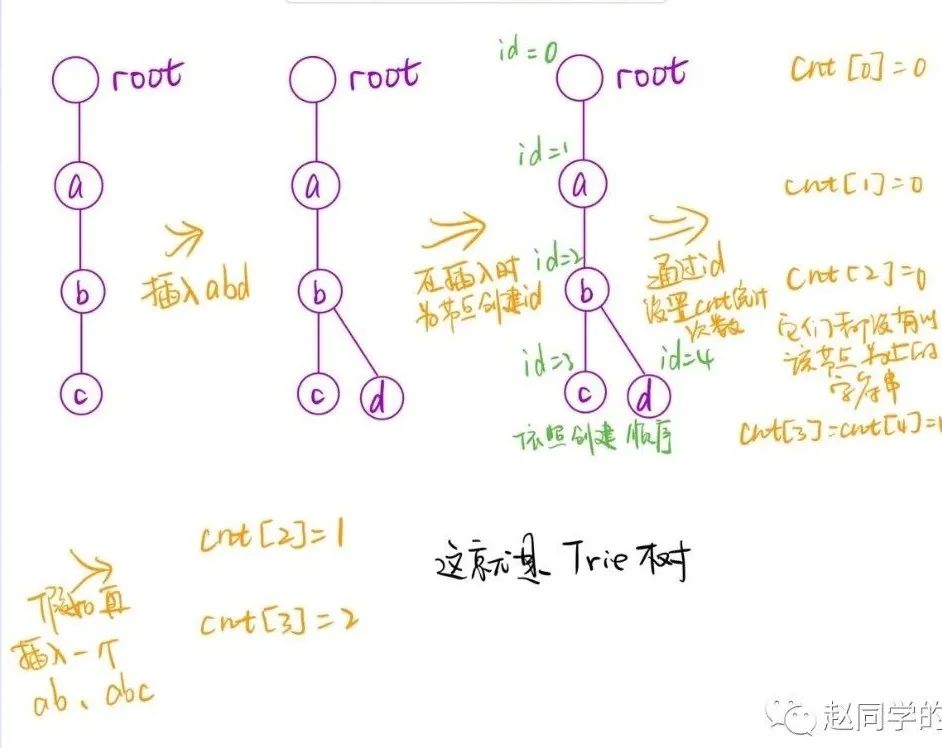 root
a
b
c
插入abd
root
a
b
c
d
在插入时
为节点创建id
id=0
root
id=1
a
id=2
b
id=3
c
id=4
d
依照创建顺序
通过id
设置cnt统计
次数
cnt[0]=0
cnt[1]=0
cnt[2]=0
它们都没有以
该节点为止的
字符串
cnt[3]=cnt[4]=1
假如再
插入一个
ab、abc
cnt[2]=1
cnt[3]=2
这就是Trie树
赵同学的